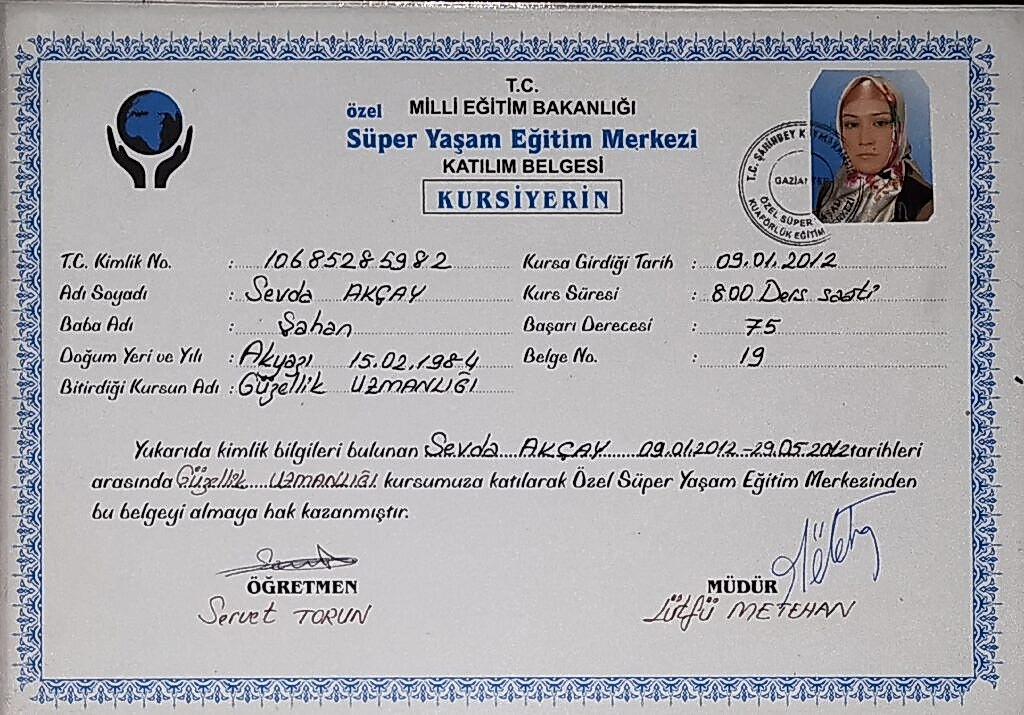 T.C.
özel MİLLİ EĞİTİM BAKANLIĞI
Süper Yaşam Eğitim Merkezi
KATILIM BELGESİ
KURSİYERİN
T.C. ŞAHİNBEY
GAZİANTEP
ÖZEL SÜPER
KUAFÖRLÜK EĞİTİM
T.C. Kimlik No. : 10685285982
Kursa Girdiği Tarih : 09.01.2012
Adı Soyadı : Sevda AKÇAY
Kurs Süresi : 800 Ders saati
Baba Adı : Şahan
Başarı Derecesi : 75
Doğum Yeri ve Yılı : Akyazı 15.02.1984
Belge No. : 19
Bitirdiği Kursun Adı : Güzellik UZMANLIĞI
Yukarıda kimlik bilgileri bulunan Sevda AKÇAY 09.01.2012-29.05.2012 tarihleri
arasında Güzellik UZMANLIĞI kursumuza katılarak Özel Süper Yaşam Eğitim Merkezinden
bu belgeyi almaya hak kazanmıştır.
ÖĞRETMEN
Servet TORUN
MÜDÜR
Lütfü METEHAN